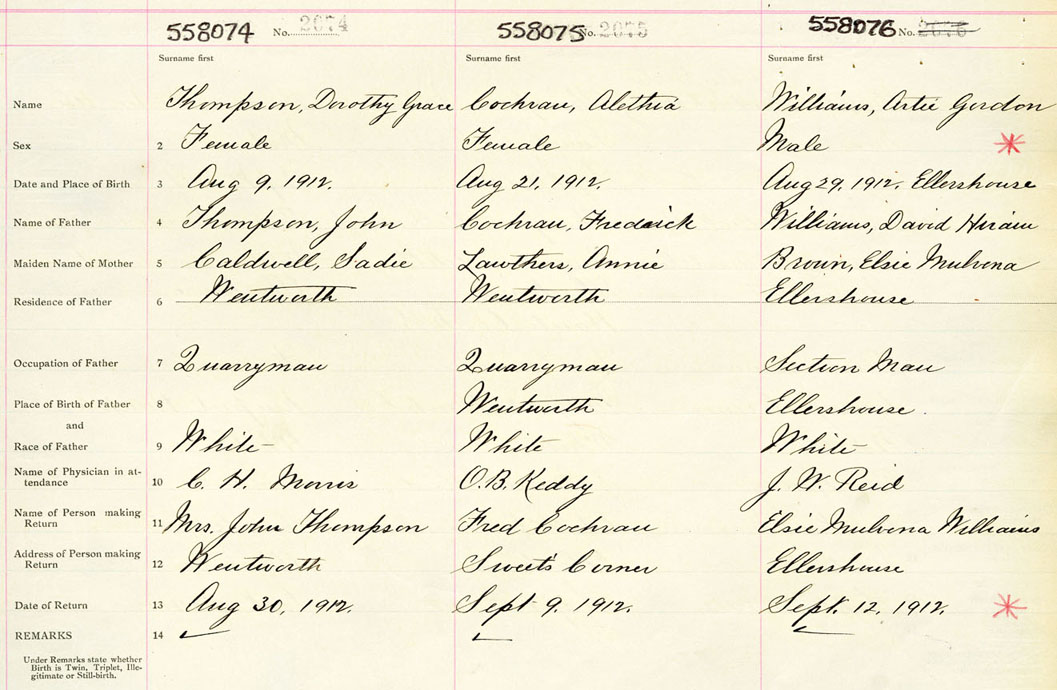 558074 No. 2074 558075 No. 2075 558076 No. 2076
Surname first Surname first Surname first
Name Thompson, Dorothy Grace Cochran, Alethia Williams, Artie Gordon
Sex 2 Female Female Male
Date and Place of Birth 3 Aug 9, 1912. Aug 21, 1912. Aug 29, 1912. Ellershouse
Name of Father 4 Thompson, John Cochran, Frederick Williams, David Hiram
Maiden Name of Mother 5 Caldwell, Sadie Lawthers, Annie Brown, Elsie Mulvona
Residence of Father 6 Wentworth Wentworth Ellershouse
Occupation of Father 7 Quarryman Quarryman Section Man
Place of Birth of Father 8 Wentworth Ellershouse.
and
Race of Father 9 White White White
Name of Physician in at-
tendance 10 C. H. Morris O.B. Keddy J. W. Reid
Name of Person making
Return 11 Mrs. John Thompson Fred Cochran Elsie Mulvona Williams
Address of Person making
Return 12 Wentworth Sweets Corner Ellershouse
Date of Return 13 Aug 30, 1912. Sept 9, 1912. Sept. 12, 1912.
REMARKS 14
Under Remarks state whether
Birth is Twin, Triplet, Ille-
gitimate or Still-birth.